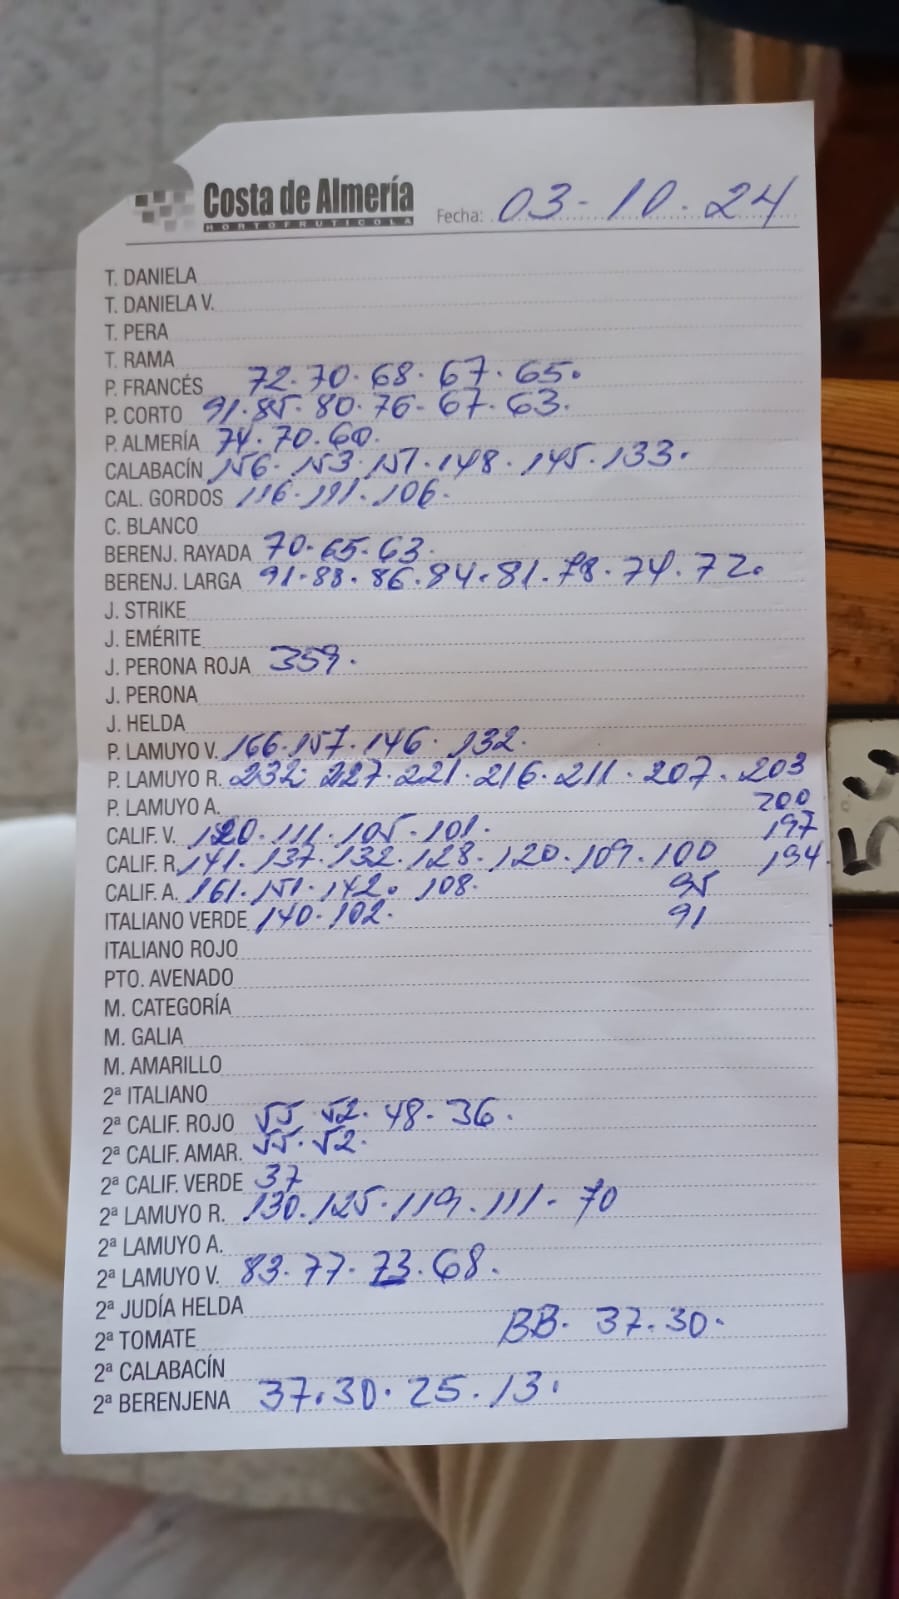 Costa de Almería
HORTOFRUTICOLA
Fecha: 03-10.24
T. DANIELA
T. DANIELA V.
T. PERA
T. RAMA
P. FRANCÉS 72.70.68.67.65.
P. CORTO 91.85.80.76-67.63.
P. ALMERÍA 74.70.60.
CALABACÍN 156.153.151.148.145.133.
CAL. GORDOS 116.111.106.
C. BLANCO
BERENJ. RAYADA 70.65.63.
BERENJ. LARGA 91.88.86.84.81.78.74.72.
J. STRIKE
J. EMÉRITE
J. PERONA ROJA 359.
J. PERONA
J. HELDA
P. LAMUYO V. 166.157.146.132.
P. LAMUYO R. 232.227.221.216.211.207.203
P. LAMUYO A. 200
CALIF. V. 120.111.105.101. 197
CALIF. R. 141.137.132.128.120.109.100 194.
CALIF. A. 161.151.142.108. 95
ITALIANO VERDE 140.102. 91
ITALIANO ROJO
PTO. AVENADO
M. CATEGORÍA
M. GALIA
M. AMARILLO
2ª ITALIANO
2ª CALIF. ROJO 55.52.48-36.
2ª CALIF. AMAR. 55.52.
2ª CALIF. VERDE 37
2ª LAMUYO R. 130.125.119.111-70
2ª LAMUYO A.
2ª LAMUYO V. 83.77.73.68.
2ª JUDÍA HELDA
2ª TOMATE BB. 37.30.
2ª CALABACÍN
2ª BERENJENA 37.30.25.13.
54